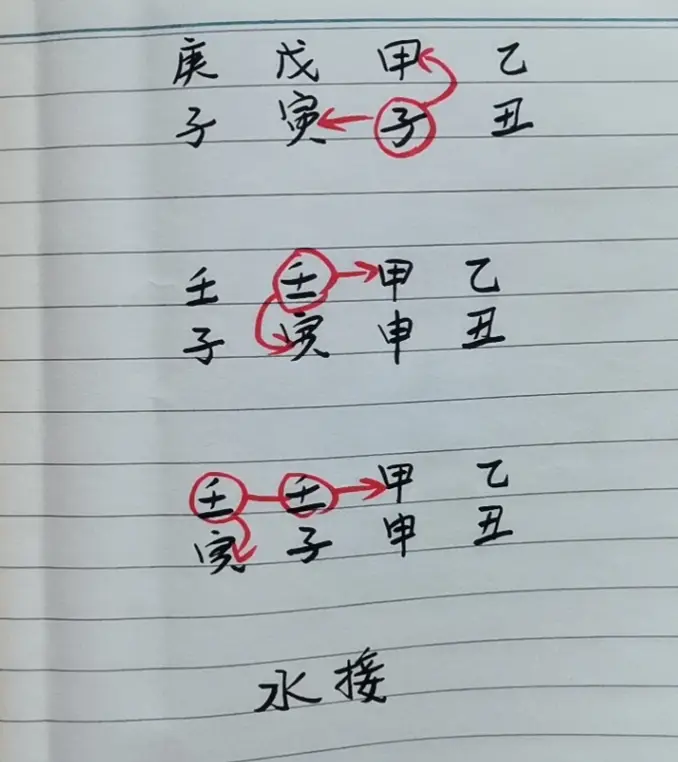 庚 戊 甲 乙
子 寅 子 丑
壬 壬 甲 乙
子 寅 申 丑
壬 壬 甲 乙
寅 子 申 丑
水接